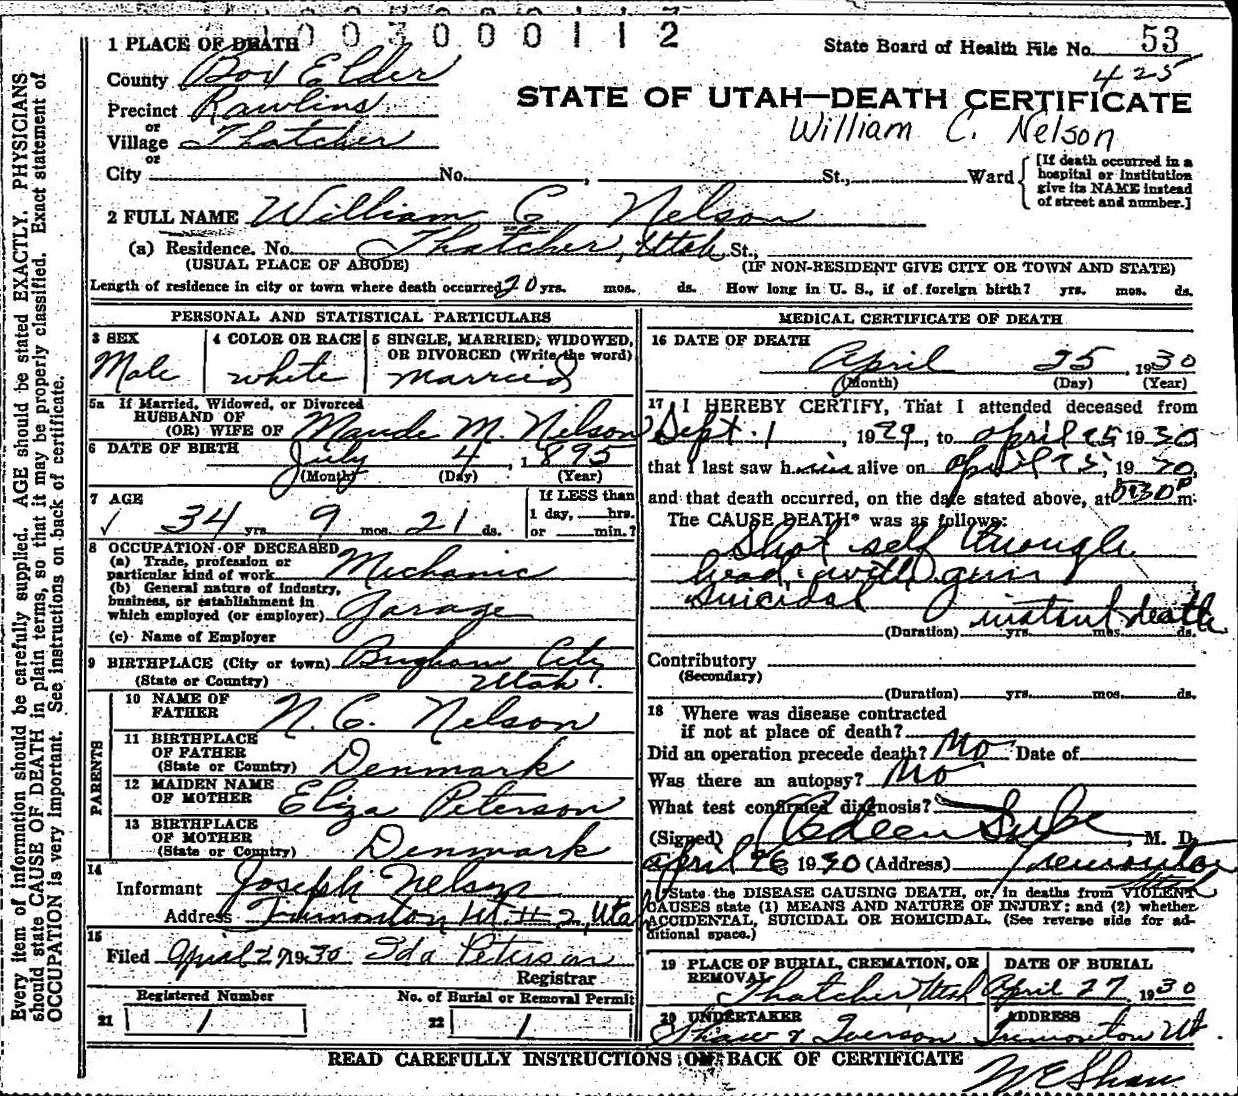 1003000112
1 PLACE OF DEATH
State Board of Health File No. 53
425
County Box Elder
STATE OF UTAH—DEATH CERTIFICATE
Precinct Rawlins
William C. Nelson
or
Village Thatcher
or
City No. , St., Ward
[If death occurred in a hospital or institution give its NAME instead of street and number.]
2 FULL NAME William C. Nelson
(a) Residence. No. Thatcher, Utah St.,
(USUAL PLACE OF ABODE) (IF NON-RESIDENT GIVE CITY OR TOWN AND STATE)
Length of residence in city or town where death occurred 20 yrs. mos. ds. How long in U. S., if of foreign birth? yrs. mos. ds.
PERSONAL AND STATISTICAL PARTICULARS
3 SEX
Male
4 COLOR OR RACE
white
5 SINGLE, MARRIED, WIDOWED,
OR DIVORCED (Write the word)
Married
5a If Married, Widowed, or Divorced
HUSBAND OF
(OR) WIFE OF Maude M. Nelson
6 DATE OF BIRTH July 4, 1895
(Month) (Day) (Year)
7 AGE
✓ 34 yrs. 9 mos. 21 ds.
If LESS than
1 day, hrs.
or min.?
8 OCCUPATION OF DECEASED
(a) Trade, profession or
particular kind of work Mechanic
(b) General nature of industry,
business, or establishment in
which employed (or employer) Garage
(c) Name of Employer
9 BIRTHPLACE (City or town) Brigham City
(State or Country) Utah
PARENTS
10 NAME OF
FATHER N. C. Nelson
11 BIRTHPLACE
OF FATHER
(State or Country) Denmark
12 MAIDEN NAME
OF MOTHER Eliza Peterson
13 BIRTHPLACE
OF MOTHER
(State or Country) Denmark
14
Informant Joseph Nelson
Address Tremonton Ut. # 2, Utah
15
Filed April 27 1930 Ida Peterson
Registrar
Registered Number
21 1
No. of Burial or Removal Permit
22 1
MEDICAL CERTIFICATE OF DEATH
16 DATE OF DEATH
April 25, 1930
(Month) (Day) (Year)
17 I HEREBY CERTIFY, That I attended deceased from
Sept. 1, 1929, to April 25 1930
that I last saw him alive on April 25, 1930,
and that death occurred, on the date stated above, at P m.
The CAUSE DEATH* was as follows:
Shot self through
head with gun
suicidal instant death
(Duration) yrs. mos. ds.
Contributory
(Secondary)
(Duration) yrs. mos. ds.
18 Where was disease contracted
if not at place of death?
Did an operation precede death? No Date of
Was there an autopsy? No
What test confirmed diagnosis?
(Signed) , M. D.
April 26 1930 (Address) Tremonton
Utah
State the DISEASE CAUSING DEATH, or, in deaths from VIOLENT
CAUSES state (1) MEANS AND NATURE OF INJURY; and (2) whether
ACCIDENTAL, SUICIDAL OR HOMICIDAL. (See reverse side for ad-
ditional space.)
19 PLACE OF BURIAL, CREMATION, OR
REMOVAL
Thatcher Utah
DATE OF BURIAL
April 27, 1930
20 UNDERTAKER
Shaw & Iverson
ADDRESS
Tremonton Ut.
READ CAREFULLY INSTRUCTIONS ON BACK OF CERTIFICATE
W E Shaw
Every item of information should be carefully supplied. AGE should be stated EXACTLY. PHYSICIANS
should state CAUSE OF DEATH in plain terms, so that it may be properly classified. Exact statement of
OCCUPATION is very important. See instructions on back of certificate.